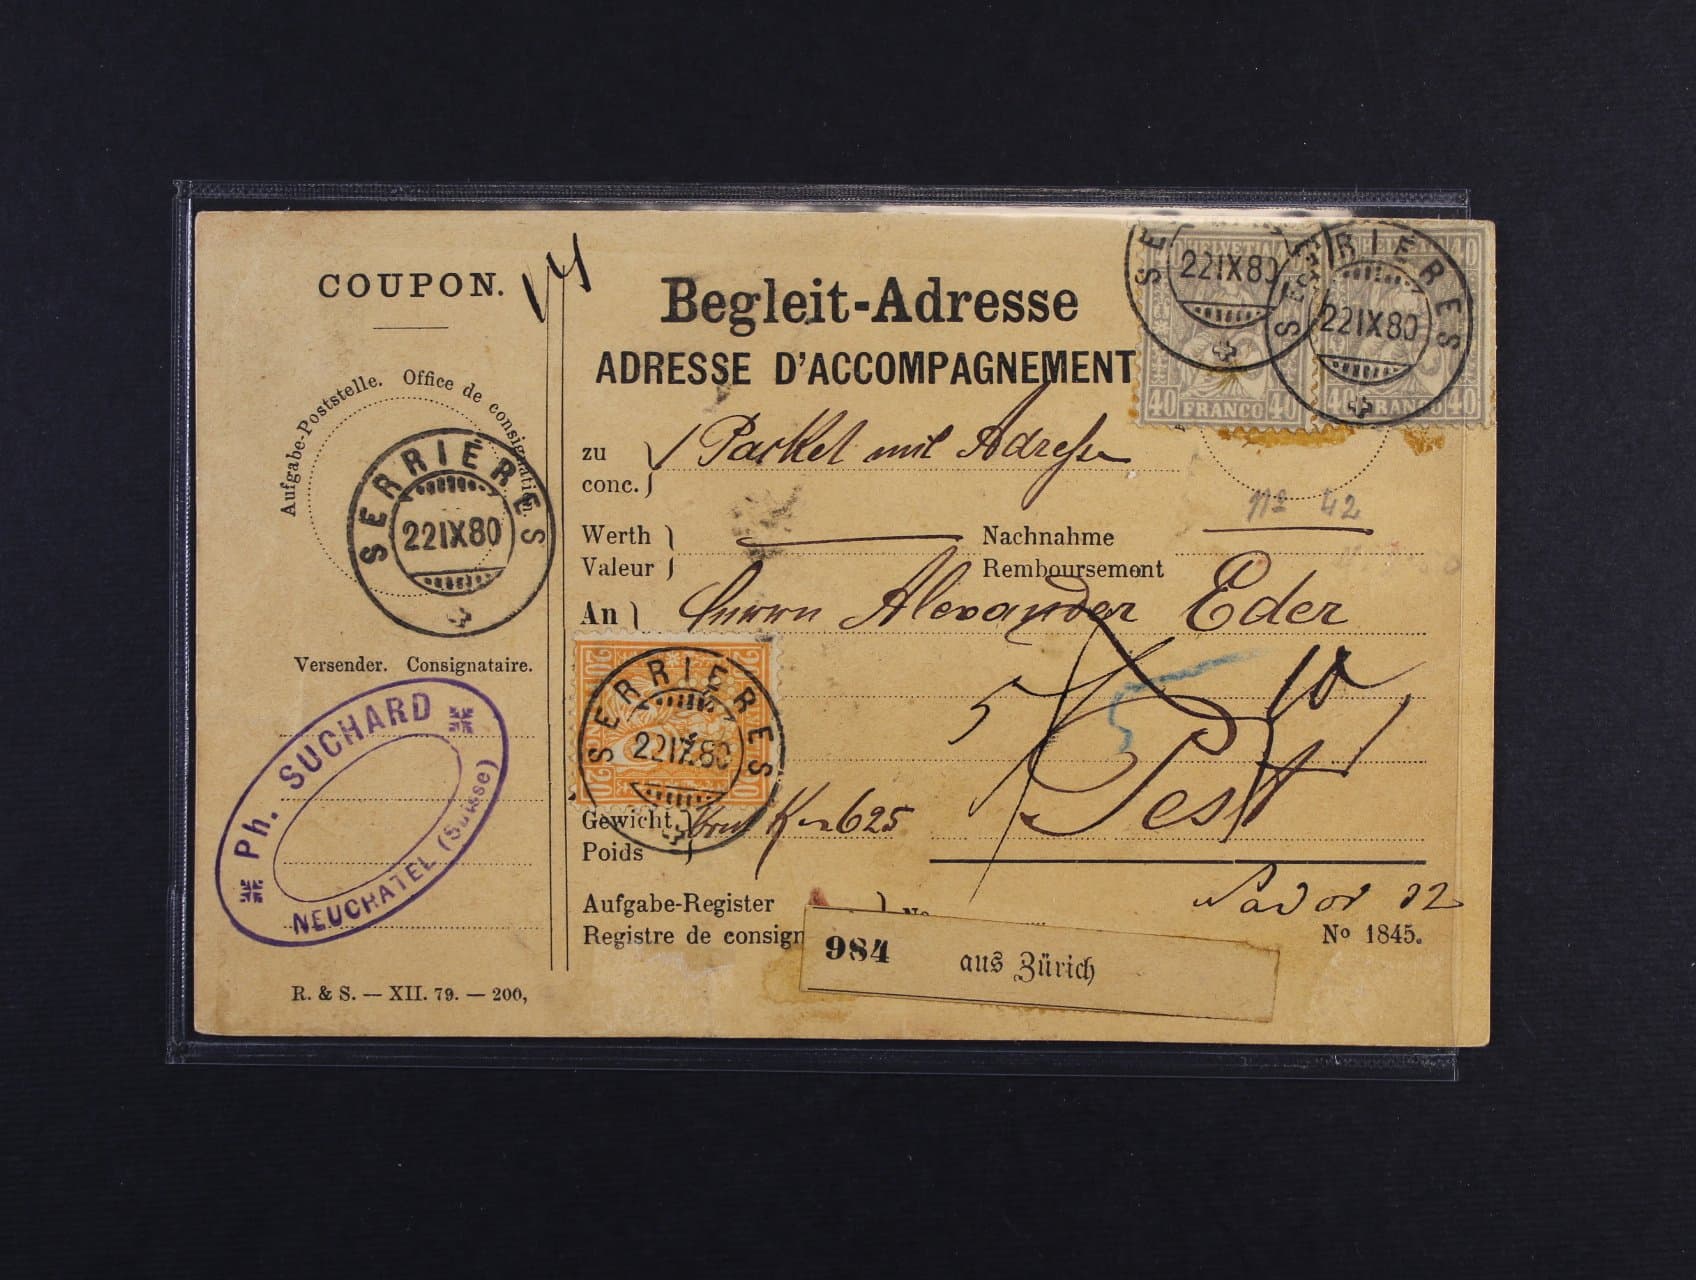 COUPON.
Begleit-Adresse
ADRESSE D'ACCOMPAGNEMENT
Aufgabe-Poststelle. Office de consignation.
SERRIÈRES
22 IX 80
HELVETIA
40 FRANCO 40
SERRIÈRES
22 IX 80
HELVETIA 40
40 FRANCO 40
SERRIÈRES
22 IX 80
zu
conc. Packet mit Adresse
No 42
Werth
Valeur
Nachnahme
Remboursement
An Herrn Alexander Eder
Versender. Consignataire.
Ph. SUCHARD
NEUCHATEL (Suisse)
20
SERRIÈRES
22 IX 80
5
10
5
Pest
Gewicht
Poids
625
Aufgabe-Register
Registre de consign
No
984 aus Zürich
No 1845.
R. & S. — XII. 79. — 200,